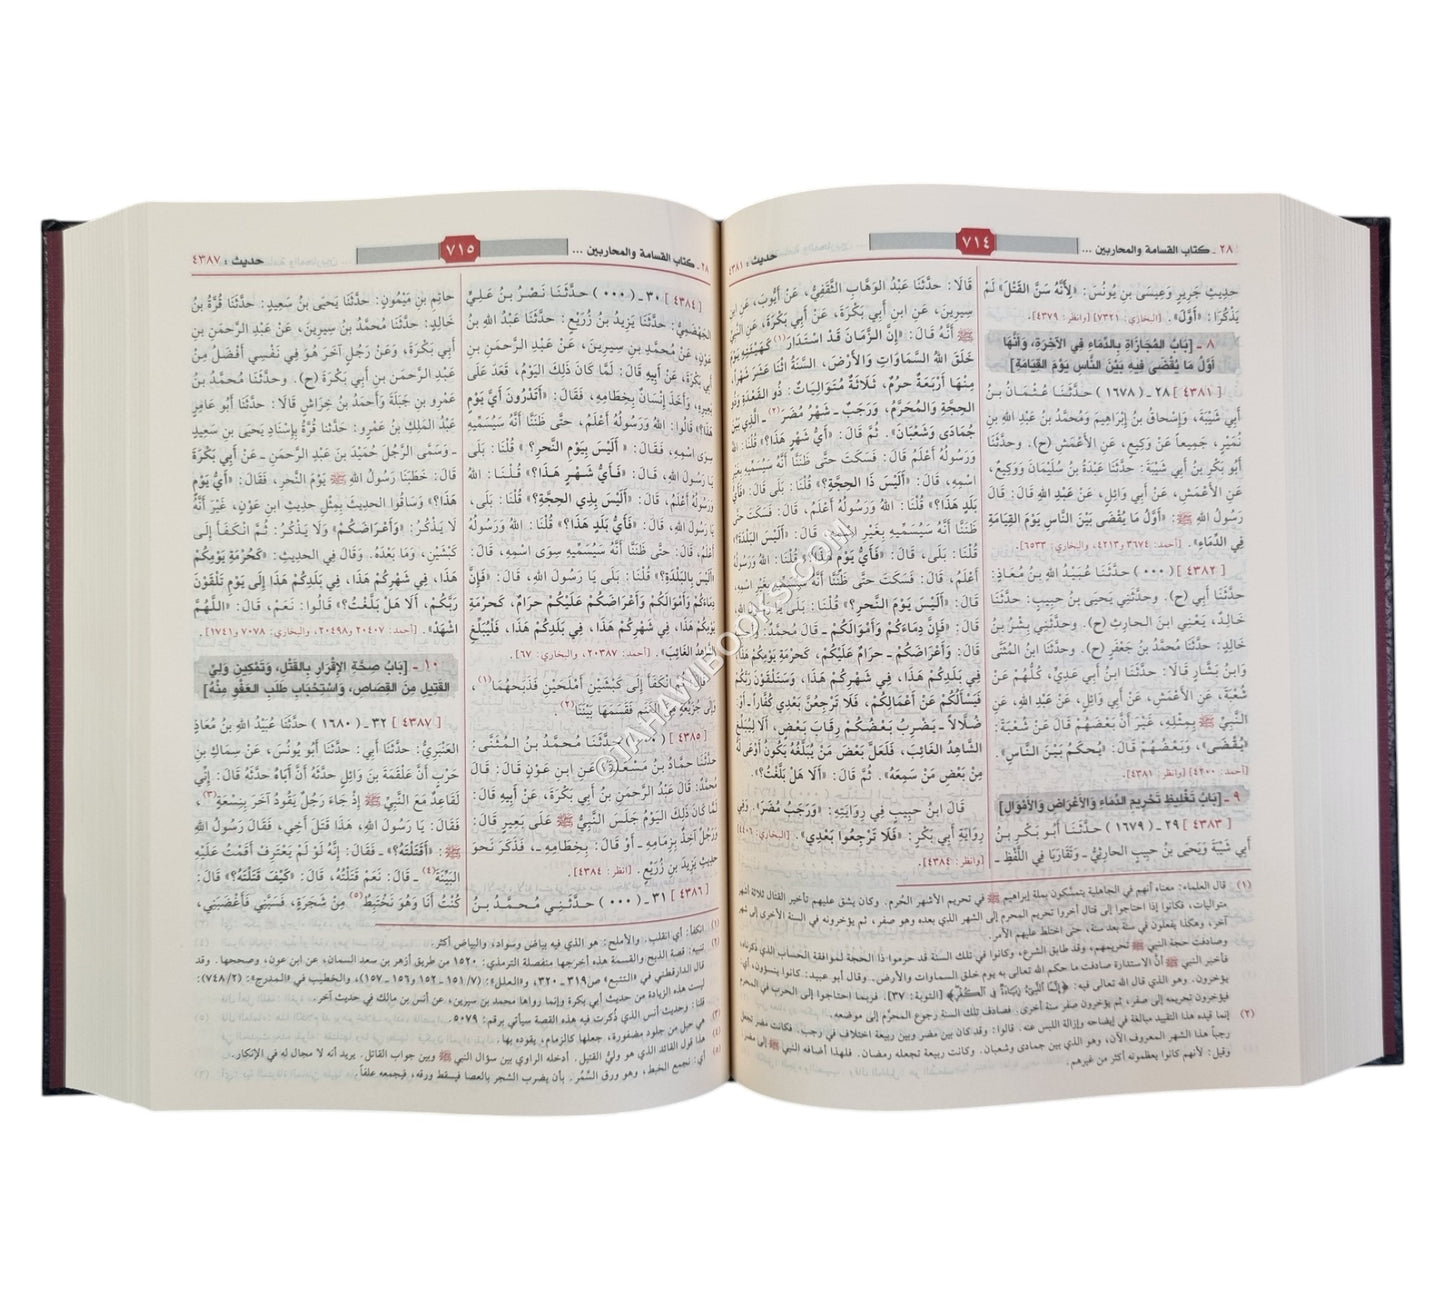 ٢٨ ـ كتاب القسامة والمحاربين ...
٧١٤
حديث : ٤٣٨١
حديثِ جَرِيرٍ وَعِيسَى بنِ يُونُسَ: «لِأَنَّهُ سَنَّ القَتْلَ» لَمْ
يَذْكُرَا: «أَوَّلَ». [البخاري: ٧٣٢١] [وانظر: ٤٣٧٩].
٨ ـ [بَابُ المُجَازَاةِ بِالدِّمَاءِ فِي الآخِرَةِ، وَأَنَّهَا
أَوَّلُ مَا يُقْضَى فِيهِ بَيْنَ النَّاسِ يَوْمَ القِيَامَةِ]
[ ٤٣٨١ ] ٢٨ ـ ( ١٦٧٨ ) حَدَّثَنَا عُثْمَانُ بنُ
أَبِي شَيْبَةَ، وَإِسْحَاقُ بنُ إِبْرَاهِيمَ وَمُحَمَّدُ بنُ عَبْدِ اللهِ بنِ
نُمَيْرٍ، جَمِيعاً عَنْ وَكِيعٍ، عَنِ الأَعْمَشِ (ح). وحَدَّثَنَا
أَبُو بَكْرِ بنُ أَبِي شَيْبَةَ: حَدَّثَنَا عَبْدَةُ بنُ سُلَيْمَانَ وَوَكِيعٌ،
عَنِ الأَعْمَشِ، عَنْ أَبِي وَائِلٍ، عَنْ عَبْدِ اللهِ قَالَ: قَالَ
رَسُولُ اللهِ ﷺ: «أَوَّلُ مَا يُقْضَى بَيْنَ النَّاسِ يَوْمَ القِيَامَةِ
فِي الدِّمَاءِ». [أحمد: ٣٦٧٤ و٤٢١٣، والبخاري: ٦٥٣٣].
[ ٤٣٨٢ ] ( ٠٠٠ ) حَدَّثَنَا عُبَيْدُ اللهِ بنُ مُعَاذٍ:
حَدَّثَنَا أَبِي (ح). وحَدَّثَنِي يَحيَى بنُ حَبِيبٍ: حَدَّثَنَا
خَالِدٌ، يَعْنِي ابنَ الحَارِثِ (ح). وحَدَّثَنِي بِشْرُ بنُ
خَالِدٍ: حَدَّثَنَا مُحَمَّدُ بنُ جَعْفَرٍ (ح). وحَدَّثَنَا ابنُ المُثَنَّى
وَابنُ بَشَّارٍ قَالَا: حَدَّثَنَا ابنُ أَبِي عَدِيٍّ، كُلُّهُمْ عَنْ
شُعْبَةَ، عَنِ الأَعْمَشِ، عَنْ أَبِي وَائِلٍ، عَنْ عَبْدِ اللهِ، عَنِ
النَّبِيِّ ﷺ بِمِثْلِهِ، غَيْرَ أَنَّ بَعْضَهُمْ قَالَ عَنْ شُعْبَةَ:
«يُقْضَى»، وَبَعْضُهُمْ قَالَ: «يُحكَمُ بَيْنَ النَّاسِ».
[أحمد: ٤٢٠٠] [وانظر: ٤٣٨١].
٩ ـ [بَابُ تَغْلِيظِ تَحْرِيمِ الدِّمَاءِ وَالأَعْرَاضِ وَالأَمْوَالِ]
[ ٤٣٨٣ ] ٢٩ ـ ( ١٦٧٩ ) حَدَّثَنَا أَبُو بَكْرِ بنُ
أَبِي شَيْبَةَ وَيَحيَى بنُ حَبِيبٍ الحَارِثِيُّ ـ وَتَقَارَبَا فِي اللَّفْظِ ـ
قَالَا: حَدَّثَنَا عَبْدُ الوَهَّابِ الثَّقَفِيُّ، عَنْ أَيُّوبَ، عَنِ ابنِ
سِيرِينَ، عَنِ ابنِ أَبِي بَكْرَةَ، عَنْ أَبِي بَكْرَةَ، عَنِ النَّبِيِّ
ﷺ أَنَّهُ قَالَ: «إِنَّ الزَّمَانَ قَدِ اسْتَدَارَ(١) كَهَيْئَتِهِ يَوْمَ
خَلَقَ اللهُ السَّمَاوَاتِ وَالأَرْضَ، السَّنَةُ اثْنَا عَشَرَ شَهْراً،
مِنْهَا أَرْبَعَةٌ حُرُمٌ، ثَلَاثَةٌ مُتَوَالِيَاتٌ: ذُو القَعْدَةِ وَذُو
الحِجَّةِ وَالمُحَرَّمُ، وَرَجَبٌ ـ شَهْرُ مُضَرَ(٢) ـ الَّذِي بَيْنَ
جُمَادَى وَشَعْبَانَ». ثُمَّ قَالَ: «أَيُّ شَهْرٍ هَذَا؟» قُلْنَا: اللهُ
وَرَسُولُهُ أَعْلَمُ قَالَ: فَسَكَتَ حَتَّى ظَنَنَّا أَنَّهُ سَيُسَمِّيهِ بِغَيْرِ
اسْمِهِ، قَالَ: «أَلَيْسَ ذَا الحِجَّةِ؟» قُلْنَا: بَلَى قَالَ: «فَأَيُّ
بَلَدٍ هَذَا؟» قُلْنَا: اللهُ وَرَسُولُهُ أَعْلَمُ، قَالَ: فَسَكَتَ حَتَّى
ظَنَنَّا أَنَّهُ سَيُسَمِّيهِ بِغَيْرِ اسْمِهِ، قَالَ: «أَلَيْسَ البَلْدَةَ؟»
قُلْنَا: بَلَى، قَالَ: «فَأَيُّ يَوْمٍ هَذَا؟» قُلْنَا: اللهُ وَرَسُولُهُ
أَعْلَمُ، قَالَ: فَسَكَتَ حَتَّى ظَنَنَّا أَنَّهُ سَيُسَمِّيهِ بِغَيْرِ اسْمِهِ،
قَالَ: «أَلَيْسَ يَوْمَ النَّحرِ؟» قُلْنَا: بَلَى يَا رَسُولَ اللهِ،
قَالَ: «فَإِنَّ دِمَاءَكُمْ وَأَمْوَالَكُمْ ـ قَالَ مُحَمَّدٌ: وَأَحْسِبُهُ
قَالَ: وَأَعْرَاضَكُمْ ـ حَرَامٌ عَلَيْكُمْ، كَحُرْمَةِ يَوْمِكُمْ هَذَا،
فِي بَلَدِكُمْ هَذَا، فِي شَهْرِكُمْ هَذَا، وَسَتَلْقَوْنَ رَبَّكُمْ
فَيَسْأَلُكُمْ عَنْ أَعْمَالِكُمْ، فَلَا تَرْجِعُنَّ بَعْدِي كُفَّاراً ـ أَوْ
ضُلَّالاً ـ يَضْرِبُ بَعْضُكُمْ رِقَابَ بَعْضٍ، أَلَا لِيُبَلِّغِ
الشَّاهِدُ الغَائِبَ، فَلَعَلَّ بَعْضَ مَنْ يُبَلَّغُهُ يَكُونُ أَوْعَى لَهُ
مِنْ بَعْضِ مَنْ سَمِعَهُ». ثُمَّ قَالَ: «أَلَا هَلْ بَلَّغْتُ؟».
قَالَ ابنُ حَبِيبٍ فِي رِوَايَتِهِ: «وَرَجَبُ مُضَرَ». وَفِي
رِوَايَةِ أَبِي بَكْرٍ: «فَلَا تَرْجِعُوا بَعْدِي». [البخاري: ٤٤٠٦]
[وانظر: ٤٣٨٤].
(١) قال العلماء: معناه أنهم في الجاهلية يتمسَّكون بملة إبراهيم ﷺ في تحريم الأشهر الحُرم. وكان يشق عليهم تأخير القتال ثلاثة أشهر
متواليات، فكانوا إذا احتاجوا إلى قتال أخروا تحريم المحرم إلى الشهر الذي بعده وهو صفر، ثم يؤخرونه في السنة الأخرى إلى شهر
آخر، وهكذا يفعلون في سنة بعد سنة، حتى اختلط عليهم الأمر.
وصادفت حجة النبي ﷺ تحريمهم، وقد طابق الشرع، وكانوا في تلك السنة قد حرموا ذا الحجة لموافقة الحساب الذي ذكرناه،
فأخبر النبي ﷺ أنَّ الاستدارة صادفت ما حكم الله تعالى به يوم خلق السماوات والأرض. وقال أبو عبيد: كانوا ينسؤون، أي:
يؤخرون. وهو الذي قال الله تعالى فيه: ﴿إِنَّمَا النَّسِيءُ زِيَادَةٌ فِي الْكُفْرِ﴾ [التوبة: ٣٧]. فربما احتاجوا إلى الحرب في المحرم
فيؤخرون تحريمه إلى صفر، ثم يؤخرون صفر في سنة أخرى. فصادف تلك السنة رجوع المحرَّم إلى موضعه.
(٢) إنما قيده هذا التقييد مبالغة في إيضاحه وإزالة اللبس عنه. قالوا: وقد كان بين مضر وبين ربيعة اختلاف في رجب. فكانت مضر تجعل
رجباً هذا الشهر المعروف الآن، وهو الذي بين جمادى وشعبان. وكانت ربيعة تجعله رمضان. فلهذا أضافه النبي ﷺ إلى مضر
وقيل: لأنهم كانوا يعظمونه أكثر من غيرهم.
٢٨ ـ كتاب القسامة والمحاربين ...
٧١٥
حديث : ٤٣٨٧
[ ٤٣٨٤ ] ٣٠ ـ ( ٠٠٠ ) حَدَّثَنَا نَصْرُ بنُ عَلِيٍّ
الجَهْضَمِيُّ: حَدَّثَنَا يَزِيدُ بنُ زُرَيْعٍ: حَدَّثَنَا عَبْدُ اللهِ بنُ
عَوْنٍ، عَنْ مُحَمَّدِ بنِ سِيرِينَ، عَنْ عَبْدِ الرَّحمَنِ بنِ
أَبِي بَكْرَةَ، عَنْ أَبِيهِ قَالَ: لَمَّا كَانَ ذَلِكَ اليَوْمُ، قَعَدَ عَلَى
بَعِيرِهِ، وَأَخَذَ إِنْسَانٌ بِخِطَامِهِ، فَقَالَ: «أَتَدْرُونَ أَيَّ يَوْمٍ
هَذَا؟» قَالُوا: اللهُ وَرَسُولُهُ أَعْلَمُ، حَتَّى ظَنَنَّا أَنَّهُ سَيُسَمِّيهِ
سِوَى اسْمِهِ، فَقَالَ: «أَلَيْسَ بِيَوْمِ النَّحرِ؟» قُلْنَا: بَلَى،
يَا رَسُولَ اللهِ، قَالَ: «فَأَيُّ شَهْرٍ هَذَا؟» قُلْنَا: اللهُ
وَرَسُولُهُ أَعْلَمُ، قَالَ: «أَلَيْسَ بِذِي الحِجَّةِ؟» قُلْنَا: بَلَى،
يَا رَسُولَ اللهِ، قَالَ: «فَأَيُّ بَلَدٍ هَذَا؟» قُلْنَا: اللهُ وَرَسُولُهُ
أَعْلَمُ، قَالَ: حَتَّى ظَنَنَّا أَنَّهُ سَيُسَمِّيهِ سِوَى اسْمِهِ، قَالَ:
«أَلَيْسَ بِالبَلْدَةِ؟» قُلْنَا: بَلَى يَا رَسُولَ اللهِ، قَالَ: «فَإِنَّ
دِمَاءَكُمْ وَأَمْوَالَكُمْ وَأَعْرَاضَكُمْ عَلَيْكُمْ حَرَامٌ، كَحُرْمَةِ
يَوْمِكُمْ هَذَا، فِي شَهْرِكُمْ هَذَا، فِي بَلَدِكُمْ هَذَا، فَلْيُبَلِّغِ
الشَّاهِدُ الغَائِبَ». [أحمد: ٢٠٣٨٧، والبخاري: ٦٧].
قَالَ: ثُمَّ انْكَفَأَ إِلَى كَبْشَيْنِ أَمْلَحَيْنِ فَذَبَحَهُمَا(١)،
وَإِلَى جُزَيْعَةٍ مِنَ الغَنَمِ فَقَسَمَهَا بَيْنَنَا(٢).
[ ٤٣٨٥ ] ( ٠٠٠ ) حَدَّثَنَا مُحَمَّدُ بنُ المُثَنَّى:
حَدَّثَنَا حَمَّادُ بنُ مَسْعَدَةَ، عَنِ ابنِ عَوْنٍ قَالَ: قَالَ
مُحَمَّدٌ: قَالَ عَبْدُ الرَّحمَنِ بنُ أَبِي بَكْرَةَ، عَنْ أَبِيهِ قَالَ:
لَمَّا كَانَ ذَلِكَ اليَوْمُ جَلَسَ النَّبِيُّ ﷺ عَلَى بَعِيرٍ قَالَ:
وَرَجُلٌ آخِذٌ بِزِمَامِهِ ـ أَوْ قَالَ: بِخِطَامِهِ ـ، فَذَكَرَ نَحوَ
حَدِيثِ يَزِيدَ بنِ زُرَيْعٍ. [انظر: ٤٣٨٤].
[ ٤٣٨٦ ] ٣١ ـ ( ٠٠٠ ) حَدَّثَنِي مُحَمَّدُ بنُ
حَاتِمِ بنِ مَيْمُونٍ: حَدَّثَنَا يَحيَى بنُ سَعِيدٍ: حَدَّثَنَا قُرَّةُ بنُ
خَالِدٍ: حَدَّثَنَا مُحَمَّدُ بنُ سِيرِينَ، عَنْ عَبْدِ الرَّحمَنِ بنِ
أَبِي بَكْرَةَ، وَعَنْ رَجُلٍ آخَرَ هُوَ فِي نَفْسِي أَفْضَلُ مِنْ
عَبْدِ الرَّحمَنِ بنِ أَبِي بَكْرَةَ (ح). وحَدَّثَنَا مُحَمَّدُ بنُ
عَمْرِو بنِ جَبَلَةَ وَأَحمَدُ بنُ خِرَاشٍ قَالَا: حَدَّثَنَا أَبُو عَامِرٍ
عَبْدُ المَلِكِ بنُ عَمْرٍو: حَدَّثَنَا قُرَّةُ بِإِسْنَادِ يَحيَى بنِ سَعِيدٍ
ـ وَسَمَّى الرَّجُلَ حُمَيْدَ بنَ عَبْدِ الرَّحمَنِ ـ عَنْ أَبِي بَكْرَةَ
قَالَ: خَطَبَنَا رَسُولُ اللهِ ﷺ يَوْمَ النَّحرِ، فَقَالَ: «أَيُّ يَوْمٍ
هَذَا؟» وَسَاقُوا الحَدِيثَ بِمِثْلِ حَدِيثِ ابنِ عَوْنٍ، غَيْرَ أَنَّهُ
لَا يَذْكُرُ: «وَأَعْرَاضَكُمْ» وَلَا يَذْكُرُ: ثُمَّ انْكَفَأَ إِلَى
كَبْشَيْنِ، وَمَا بَعْدَهُ. وَقَالَ فِي الحَدِيثِ: «كَحُرْمَةِ يَوْمِكُمْ
هَذَا، فِي شَهْرِكُمْ هَذَا، فِي بَلَدِكُمْ هَذَا إِلَى يَوْمِ تَلْقَوْنَ
رَبَّكُمْ، أَلَا هَلْ بَلَّغْتُ؟» قَالُوا: نَعَمْ، قَالَ: «اللَّهُمَّ
اشْهَدْ». [أحمد: ٢٠٤٠٧ و٢٠٤٩٨، والبخاري: ٧٠٧٨ و١٧٤١].
١٠ ـ [بَابُ صِحَّةِ الإِقْرَارِ بِالقَتْلِ، وَتَمْكِينِ وَلِيِّ
القَتِيلِ مِنَ القِصَاصِ، وَاسْتِحْبَابِ طَلَبِ العَفْوِ مِنْهُ]
[ ٤٣٨٧ ] ٣٢ ـ ( ١٦٨٠ ) حَدَّثَنَا عُبَيْدُ اللهِ بنُ مُعَاذٍ
العَنْبَرِيُّ: حَدَّثَنَا أَبِي: حَدَّثَنَا أَبُو يُونُسَ، عَنْ سِمَاكِ بنِ
حَرْبٍ أَنَّ عَلْقَمَةَ بنَ وَائِلٍ حَدَّثَهُ أَنَّ أَبَاهُ حَدَّثَهُ قَالَ: إِنِّي
لَقَاعِدٌ مَعَ النَّبِيِّ ﷺ إِذْ جَاءَ رَجُلٌ يَقُودُ آخَرَ بِنِسْعَةٍ(٣)،
فَقَالَ: يَا رَسُولَ اللهِ، هَذَا قَتَلَ أَخِي، فَقَالَ رَسُولُ اللهِ
ﷺ: «أَقَتَلْتَهُ؟» ـ فَقَالَ: إِنَّهُ لَوْ لَمْ يَعْتَرِفْ أَقَمْتُ عَلَيْهِ
البَيِّنَةَ(٤) ـ قَالَ: نَعَمْ قَتَلْتُهُ، قَالَ: «كَيْفَ قَتَلْتَهُ؟» قَالَ:
كُنْتُ أَنَا وَهُوَ نَخْتَبِطُ(٥) مِنْ شَجَرَةٍ، فَسَبَّنِي فَأَغْضَبَنِي،
(١) انكفأ: أي انقلب. والأملح: هو الذي فيه بياض وسواد، والبياض أكثر.
(٢) تنبيه: قصة الذبح والقسمة هذه أخرجها منفصلة الترمذي: ١٥٢٠ من طريق أزهر بن سعد السمان، عن ابن عون، وصححها. وقد
قال الدارقطني في «التتبع» ص٣١٩ ـ ٣٢٠، و«العلل»: (٧/ ١٥١ ـ ١٥٢ و١٥٦ ـ ١٥٧)، والخطيب في «المدرج»: (٢/ ٧٤٨)
ليست هذه الزيادة من حديث أبي بكرة وإنما رواها محمد بن سيرين، عن أنس بن مالك في حديث آخر.
قلنا: وحديث أنس الذي ذُكرت فيه هذه القصة سيأتي برقم: ٥٠٧٩.
(٣) هي حبل من جلود مضفورة، جعلها كالزمام، يقوده بها.
(٤) هذا قول القائد الذي هو وليُّ القتيل. أدخله الراوي بين سؤال النبي ﷺ وبين جواب القاتل. يريد أنه لا مجال له في الإنكار.
(٥) أي: نجمع الخبط، وهو ورق السَّمُر. بأن يضرب الشجر بالعصا فيسقط ورقه، فيجمعه علفاً.
©TAHAWIBOOKS.COM